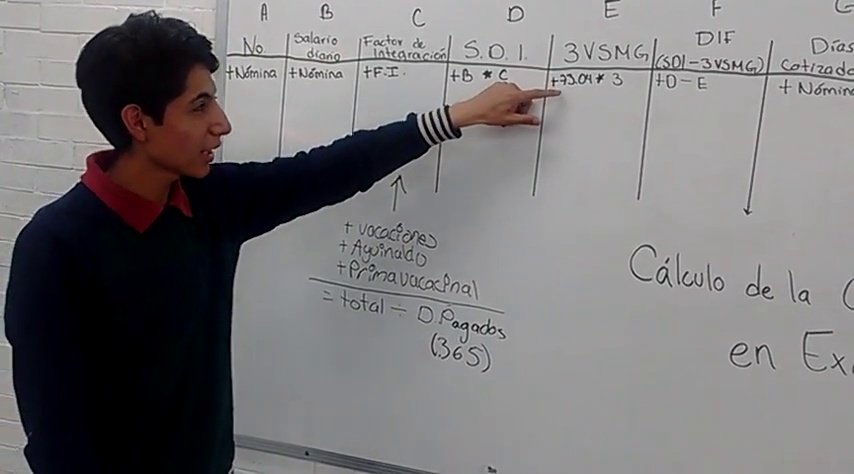 A B C D E F G
No Salario diario Factor de Integración S.D.I. 3VSMG DIF (SDI-3VSMG) Días
+Nómina +Nómina +F.I. +B * C +73.04 * 3 +D-E + Nómina
+ vacaciones
+ Aguinaldo
+Prima vacacional
= total ÷ D.Pagados
(365)
Cálculo de la
en